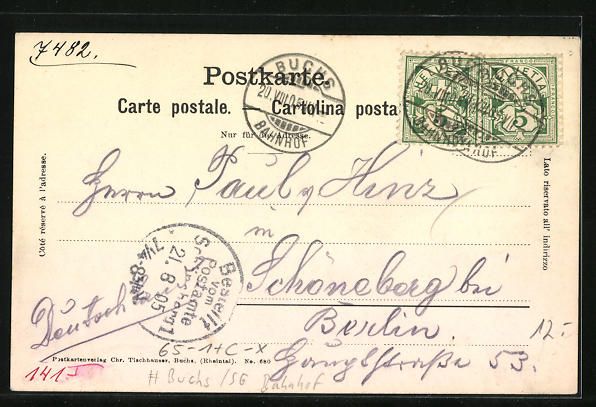 7482.
Postkarte.
Carte postale. Cartolina posta
Nur für die Adresse.
BUCHS
20 VIII 05
BAHNHOF
HELVETIA
FRANCO
5
BAHNHOF
Côté réservé à l'adresse.
Lato riservato all' indirizzo
Herrn Paul Hinz
in
Schöneberg bei
Berlin.
Hauptstraße 53.
Bestellt
vom
Postamte
21. 8. 05
Deutsch
12.-
65-1+C-X
Postkartenverlag Chr. Tischhauser, Buchs, (Rheintal). No. 680
141
# Buchs / SG Bahnhof